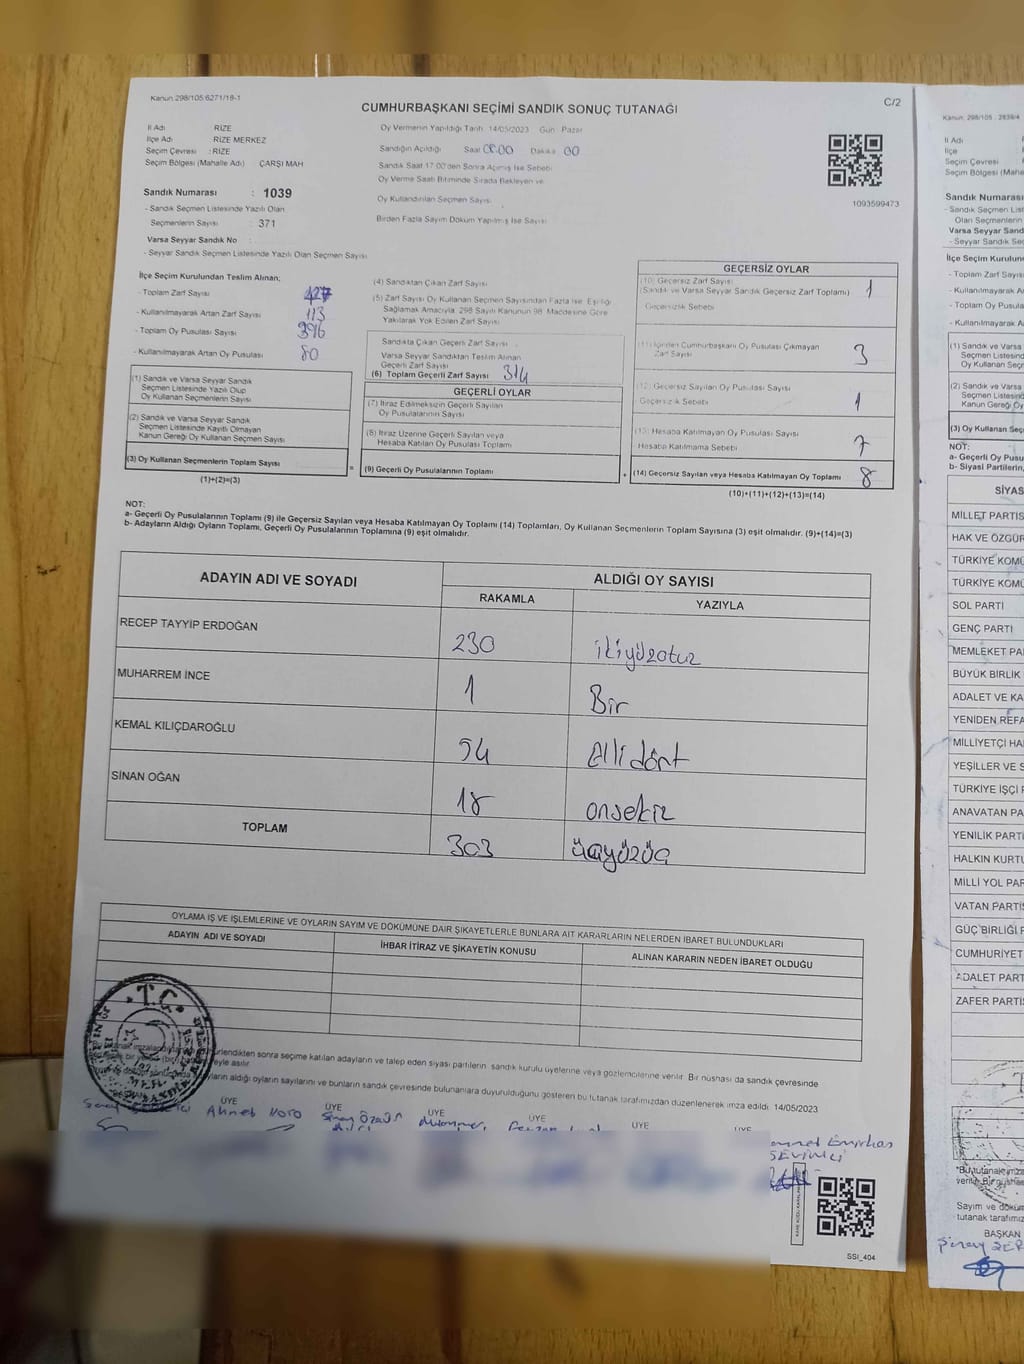 Kanun 298/105 6271/18-1
C/2
CUMHURBAŞKANI SEÇİMİ SANDIK SONUÇ TUTANAĞI
İl Adı RİZE
İlçe Adı RİZE MERKEZ
Seçim Çevresi : RİZE
Seçim Bölgesi (Mahalle Adı) ÇARŞI MAH
Sandık Numarası : 1039
- Sandık Seçmen Listesinde Yazılı Olan
Seçmenlerin Sayısı : 371
Varsa Seyyar Sandık No
- Seyyar Sandık Seçmen Listesinde Yazılı Olan Seçmen Sayısı
Oy Vermenin Yapıldığı Tarih 14/05/2023 Gün Pazar
Sandığın Açıldığı Saat 08.00 Dakika 00
Sandık Saat 17.00'den Sonra Açılmış İse Sebebi
Oy Verme Saati Bitiminde Sırada Bekleyen ve
Oy Kullandırılan Seçmen Sayısı
Birden Fazla Sayım Döküm Yapılmış İse Sayısı
1093599473
İlçe Seçim Kurulundan Teslim Alınan;
- Toplam Zarf Sayısı 427
- Kullanılmayarak Artan Zarf Sayısı 113
- Toplam Oy Pusulası Sayısı 396
- Kullanılmayarak Artan Oy Pusulası 80
(1) Sandık ve Varsa Seyyar Sandık
Seçmen Listesinde Yazılı Olup
Oy Kullanan Seçmenlerin Sayısı
(2) Sandık ve Varsa Seyyar Sandık
Seçmen Listesinde Kayıtlı Olmayan
Kanun Gereği Oy Kullanan Seçmen Sayısı
(3) Oy Kullanan Seçmenlerin Toplam Sayısı
(1)+(2)=(3)
(4) Sandıktan Çıkan Zarf Sayısı
(5) Zarf Sayısı Oy Kullanan Seçmen Sayısından Fazla İse, Eşitliği
Sağlamak Amacıyla; 298 Sayılı Kanunun 98. Maddesine Göre
Yakılarak Yok Edilen Zarf Sayısı
Sandıkta Çıkan Geçerli Zarf Sayısı
Varsa Seyyar Sandıktan Teslim Alınan
Geçerli Zarf Sayısı
(6) Toplam Geçerli Zarf Sayısı 314
GEÇERLİ OYLAR
(7) İtiraz Edilmeksizin Geçerli Sayılan
Oy Pusulalarının Sayısı
(8) İtiraz Üzerine Geçerli Sayılan veya
Hesaba Katılan Oy Pusulası Toplamı
= (9) Geçerli Oy Pusulalarının Toplamı
GEÇERSİZ OYLAR
(10) Geçersiz Zarf Sayısı
(Sandık ve Varsa Seyyar Sandık Geçersiz Zarf Toplamı) 1
Geçersizlik Sebebi
(11) İçinden Cumhurbaşkanı Oy Pusulası Çıkmayan
Zarf Sayısı 3
(12) Geçersiz Sayılan Oy Pusulası Sayısı
Geçersizlik Sebebi 1
(13) Hesaba Katılmayan Oy Pusulası Sayısı
Hesaba Katılmama Sebebi 7
+ (14) Geçersiz Sayılan veya Hesaba Katılmayan Oy Toplamı 8
(10)+(11)+(12)+(13)=(14)
NOT:
a- Geçerli Oy Pusulalarının Toplamı (9) ile Geçersiz Sayılan veya Hesaba Katılmayan Oy Toplamı (14) Toplamları, Oy Kullanan Seçmenlerin Toplam Sayısına (3) eşit olmalıdır. (9)+(14)=(3)
b- Adayların Aldığı Oyların Toplamı, Geçerli Oy Pusulalarının Toplamına (9) eşit olmalıdır.
ADAYIN ADI VE SOYADI ALDIĞI OY SAYISI
RAKAMLA YAZIYLA
RECEP TAYYİP ERDOĞAN 230 ikiyüzotuz
MUHARREM İNCE 1 Bir
KEMAL KILIÇDAROĞLU 54 Elli dört
SİNAN OĞAN 18 onsekiz
TOPLAM 303 üçyüzüç
OYLAMA İŞ VE İŞLEMLERİNE VE OYLARIN SAYIM VE DÖKÜMÜNE DAİR ŞİKAYETLERLE BUNLARA AİT KARARLARIN NELERDEN İBARET BULUNDUKLARI
ADAYIN ADI VE SOYADI İHBAR İTİRAZ VE ŞİKAYETİN KONUSU ALINAN KARARIN NEDEN İBARET OLDUĞU
T.C.
sonra seçime katılan adayların ve talep eden siyasi partilerin sandık kurulu üyelerine veya gözlemcilerine verilir. Bir nüshası da sandık çevresinde
aldığı oyların sayılarını ve bunların sandık çevresinde bulunanlara duyurulduğunu gösteren bu tutanak tarafımızdan düzenlenerek imza edildi. 14/05/2023
ÜYE ÜYE ÜYE ÜYE ÜYE ÜYE
Ahmet
SSI_404
Kanun: 298/105
İl Adı
İlçe
Seçim Çevresi
Seçim Bölgesi (Mahalle
Sandık Numarası
- Sandık Seçmen
Olan Seçmenlerin
Varsa Seyyar Sand
- Seyyar Sandık
İlçe Seçim Kurulun
- Toplam Zarf Sayısı
- Kullanılmayarak
- Toplam Oy Pusula
- Kullanılmayarak
(1) Sandık ve Varsa
Seçmen Listesinde
Oy Kullanan
(2) Sandık ve Varsa
Seçmen Listesinde
Kanun Gereği
(3) Oy Kullanan Seç
NOT:
a- Geçerli Oy Pusu
b- Siyasi Partilerin
SİYAS
MİLLET PARTİS
HAK VE ÖZGÜR
TÜRKİYE KOMÜ
TÜRKİYE KOMÜ
SOL PARTİ
GENÇ PARTİ
MEMLEKET PA
BÜYÜK BİRLİK
ADALET VE KA
YENİDEN REFA
MİLLİYETÇİ HA
YEŞİLLER VE S
TÜRKİYE İŞÇİ P
ANAVATAN PA
YENİLİK PARTİ
HALKIN KURTU
MİLLİ YOL PAR
VATAN PARTİS
GÜÇ BİRLİĞİ P
CUMHURİYET
ADALET PARTİ
ZAFER PARTİS
Sayım ve döküm
tutanak tarafımız
BAŞKAN